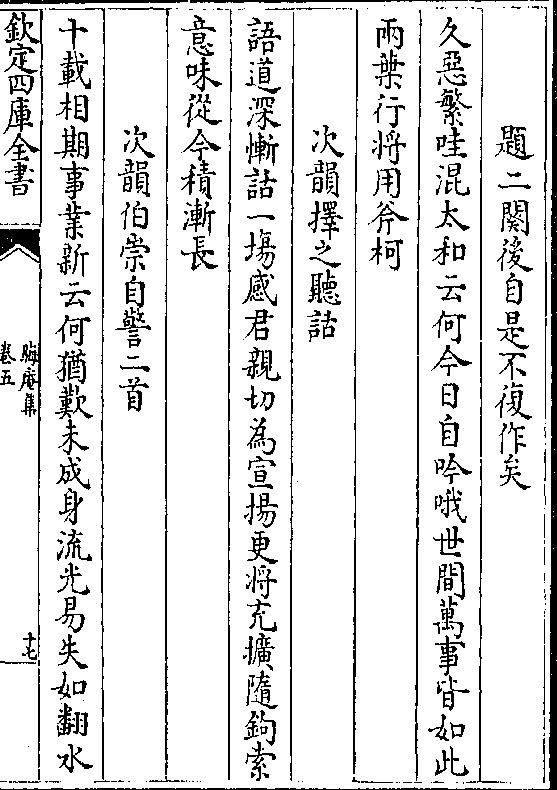 題二闋後自是不復作矣
久惡繁哇混太和云何今日自吟哦世間萬事皆如此
兩葉行將用斧柯
次韻擇之聽話
語道深慚話一場感君親切為宣揚更將充擴隨鉤索
意味從今積漸長
次韻伯崇自警二首
十載相期事業新云何猶歎未成身流光易失如翻水
欽定四庫全書
晦庵集
卷五
十七